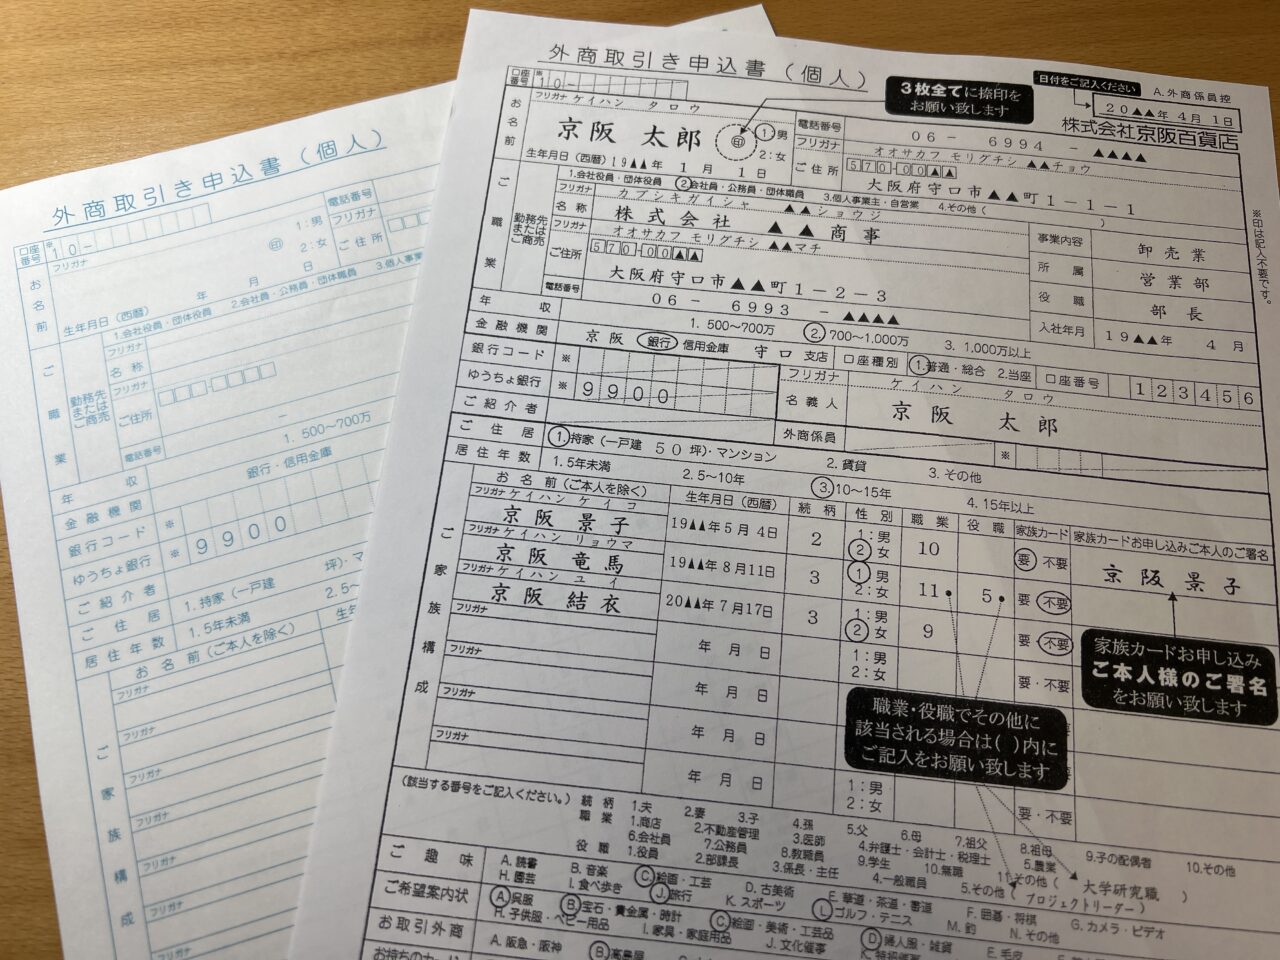 外商取引き申込書(個人)
口座番号 ※10-
フリガナ
お名前
㊞
1:男
2:女
生年月日(西暦) 年 月 日
電話番号
フリガナ
ご住所
ご職業
1.会社役員・団体役員 2.会社員・公務員・団体職員 3.個人事業
勤務先またはご商売
フリガナ
名称
フリガナ
ご住所
電話番号 -
年収 1. 500~700万
金融機関 銀行・信用金庫
銀行コード ※
ゆうちょ銀行 ※ 9900
ご紹介者
ご住居 1.持家(一戸建 坪)・マ
居住年数 1.5年未満 2.5~
お名前(ご本人を除く)
ご家族構成
フリガナ
フリガナ
フリガナ
フリガナ
フリガナ
フリガナ
外商取引き申込書(個人)
3枚全てに捺印をお願い致します
日付をご記入ください
A.外商係員控
20▲▲年 4月 1日
株式会社京阪百貨店
口座番号 ※10-
フリガナ ケイハン タロウ
お名前 京阪 太郎 ㊞ ①男 2:女
生年月日(西暦)19▲▲年 1月 1日
電話番号 06 - 6994 - ▲▲▲▲
フリガナ オオサカフ モリグチシ ▲▲チョウ
ご住所 570-00▲▲
大阪府守口市▲▲町1-1-1
※印は記入不要です。
ご職業
1.会社役員・団体役員 ②会社員・公務員・団体職員 3.個人事業主・自営業 4.その他( )
勤務先またはご商売
フリガナ カブシキガイシャ ▲▲ショウジ
名称 株式会社 ▲▲商事
フリガナ オオサカフ モリグチシ ▲▲マチ
ご住所 570-00▲▲
大阪府守口市▲▲町1-2-3
電話番号 06 - 6993 - ▲▲▲▲
事業内容 卸売業
所属 営業部
役職 部長
入社年月 19▲▲年 4月
年収 1. 500~700万 ②700~1,000万 3. 1,000万以上
金融機関 京阪 銀行 信用金庫 守口 支店 口座種別 ①普通・総合 2.当座 口座番号 123456
銀行コード ※
ゆうちょ銀行 ※ 9900
フリガナ ケイハン タロウ
名義人 京阪 太郎
ご紹介者
外商係員 ※
ご住居 ①持家(一戸建 50坪)・マンション 2. 賃貸 3. その他
居住年数 1.5年未満 2.5~10年 ③10~15年 4.15年以上
ご家族構成
お名前(ご本人を除く) 生年月日(西暦) 続柄 性別 職業 役職 家族カード 家族カードお申し込みご本人のご署名
フリガナ ケイハン ケイコ
京阪 景子 19▲▲年5月4日 2 1:男 ②女 10 要・不要 京阪 景子
フリガナ ケイハン リョウマ
京阪 竜馬 19▲▲年8月11日 3 ①男 2:女 11 5 要・不要
フリガナ ケイハン ユイ
京阪 結衣 20▲▲年7月17日 3 1:男 ②女 9 要・不要
フリガナ
年 月 日 1:男 2:女 要・不要
フリガナ
年 月 日
フリガナ
年 月 日
フリガナ
年 月 日 1:男 2:女 要・不要
家族カードお申し込み
ご本人様のご署名
をお願い致します
職業・役職でその他に
該当される場合は( )内に
ご記入をお願い致します
(該当する番号をご記入ください。)
続柄 1.夫 2.妻 3.子 4.孫 5.父 6.母 7.祖父 8.祖母 9.子の配偶者 10.その他
職業 1.商店 2.不動産管理 3.医師 4.弁護士・会計士・税理士 5.農業
6.会社員 7.公務員 8.教職員 9.学生 10.無職 11.その他( 大学研究職 )
役職 1.役員 2.部課長 3.係長・主任 4.一般職員 5.その他( プロジェクトリーダー )
ご趣味 A. 読書 B. 音楽 Ⓒ絵画・工芸 D. 古美術 E. 華道・茶道・書道 F. 囲碁・将棋 G. カメラ・ビデオ
H. 園芸 I. 食べ歩き Ⓙ旅行 K. スポーツ Ⓛゴルフ・テニス M. 釣 N. その他
ご希望案内状 Ⓐ呉服 Ⓑ宝石・貴金属・時計 Ⓒ絵画・美術・工芸品 Ⓓ婦人服・雑貨 E. 毛皮
H. 子供服・ベビー用品 I. 家具・家庭用品 J. 文化催事
お取引外商 A. 阪急・阪神 Ⓑ高島屋